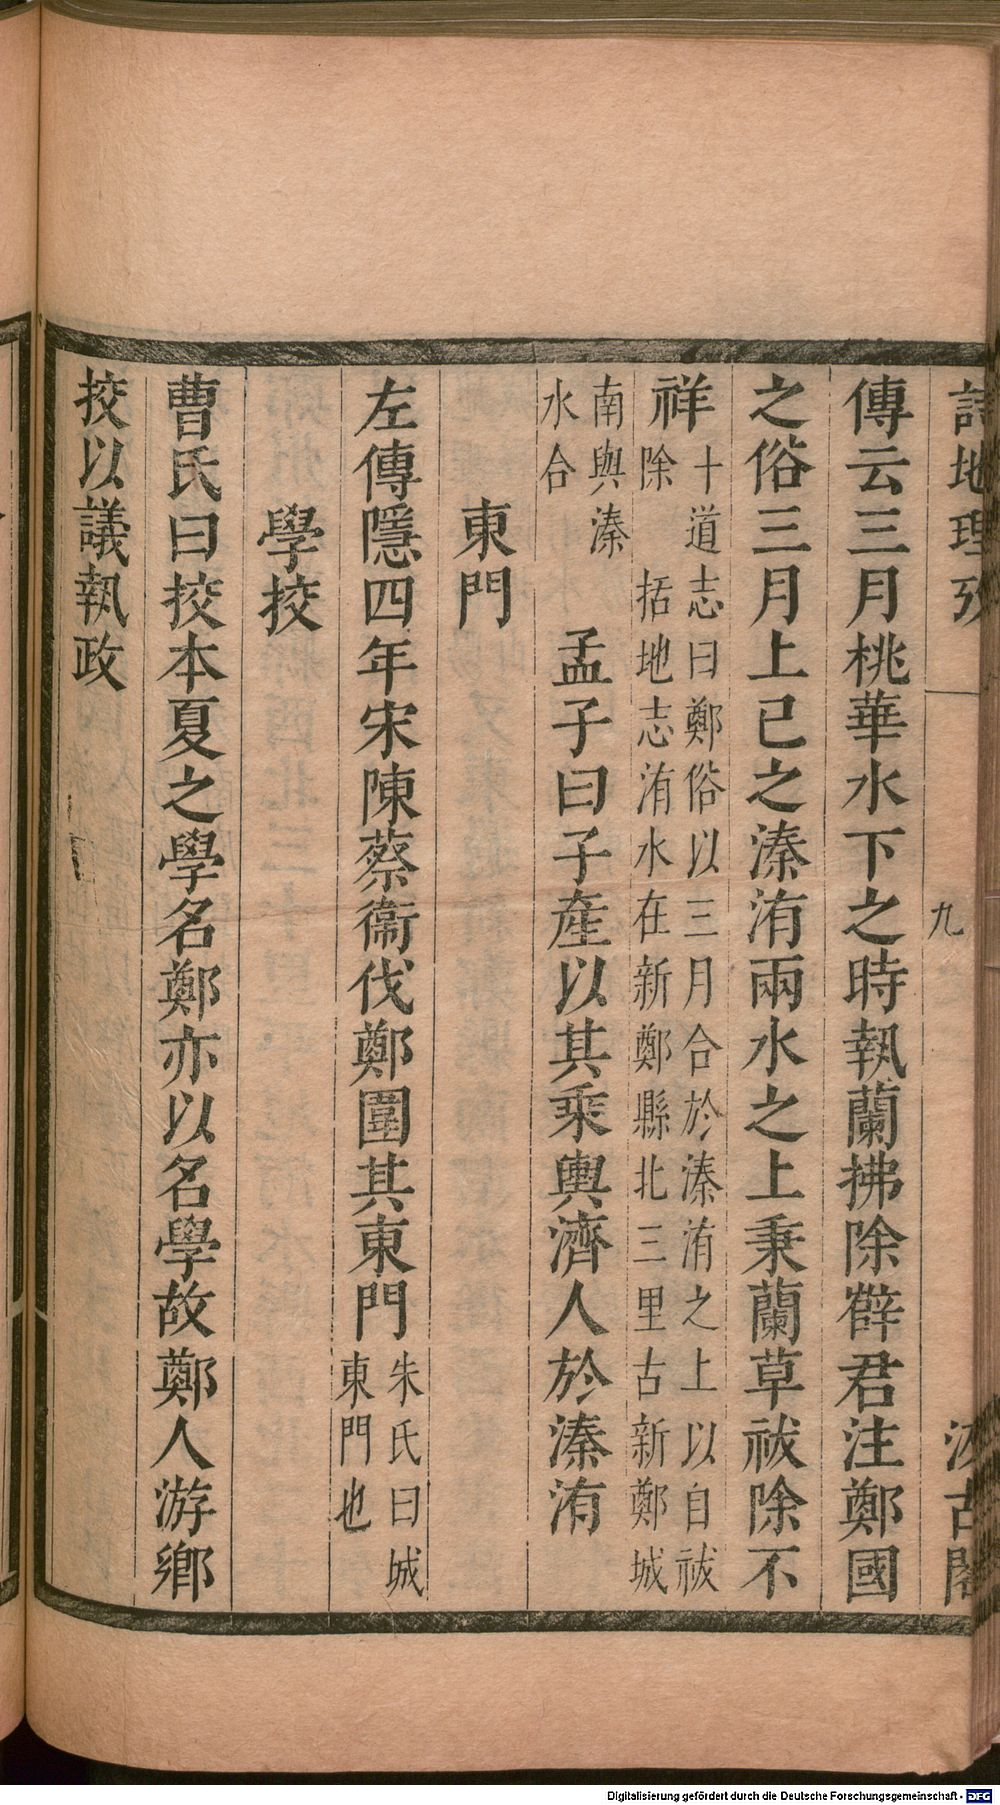 詩地理攷
九
汲古閣
傳云三月桃華水下之時執蘭拂除薜君注鄭國
之俗三月上已之溱洧兩水之上秉蘭草祓除不
祥十道志曰鄭俗以三月合於溱洧之上以自祓
除 括地志洧水在新鄭縣北三里古新鄭城
南與溱
水合 孟子曰子產以其乘輿濟人於溱洧
東門
左傳隱四年宋陳蔡衞伐鄭圍其東門朱氏曰城
東門也
學挍
曹氏曰挍本夏之學名鄭亦以名學故鄭人游鄉
挍以議執政
Digitalisierung gefördert durch die Deutsche Forschungsgemeinschaft - DFG